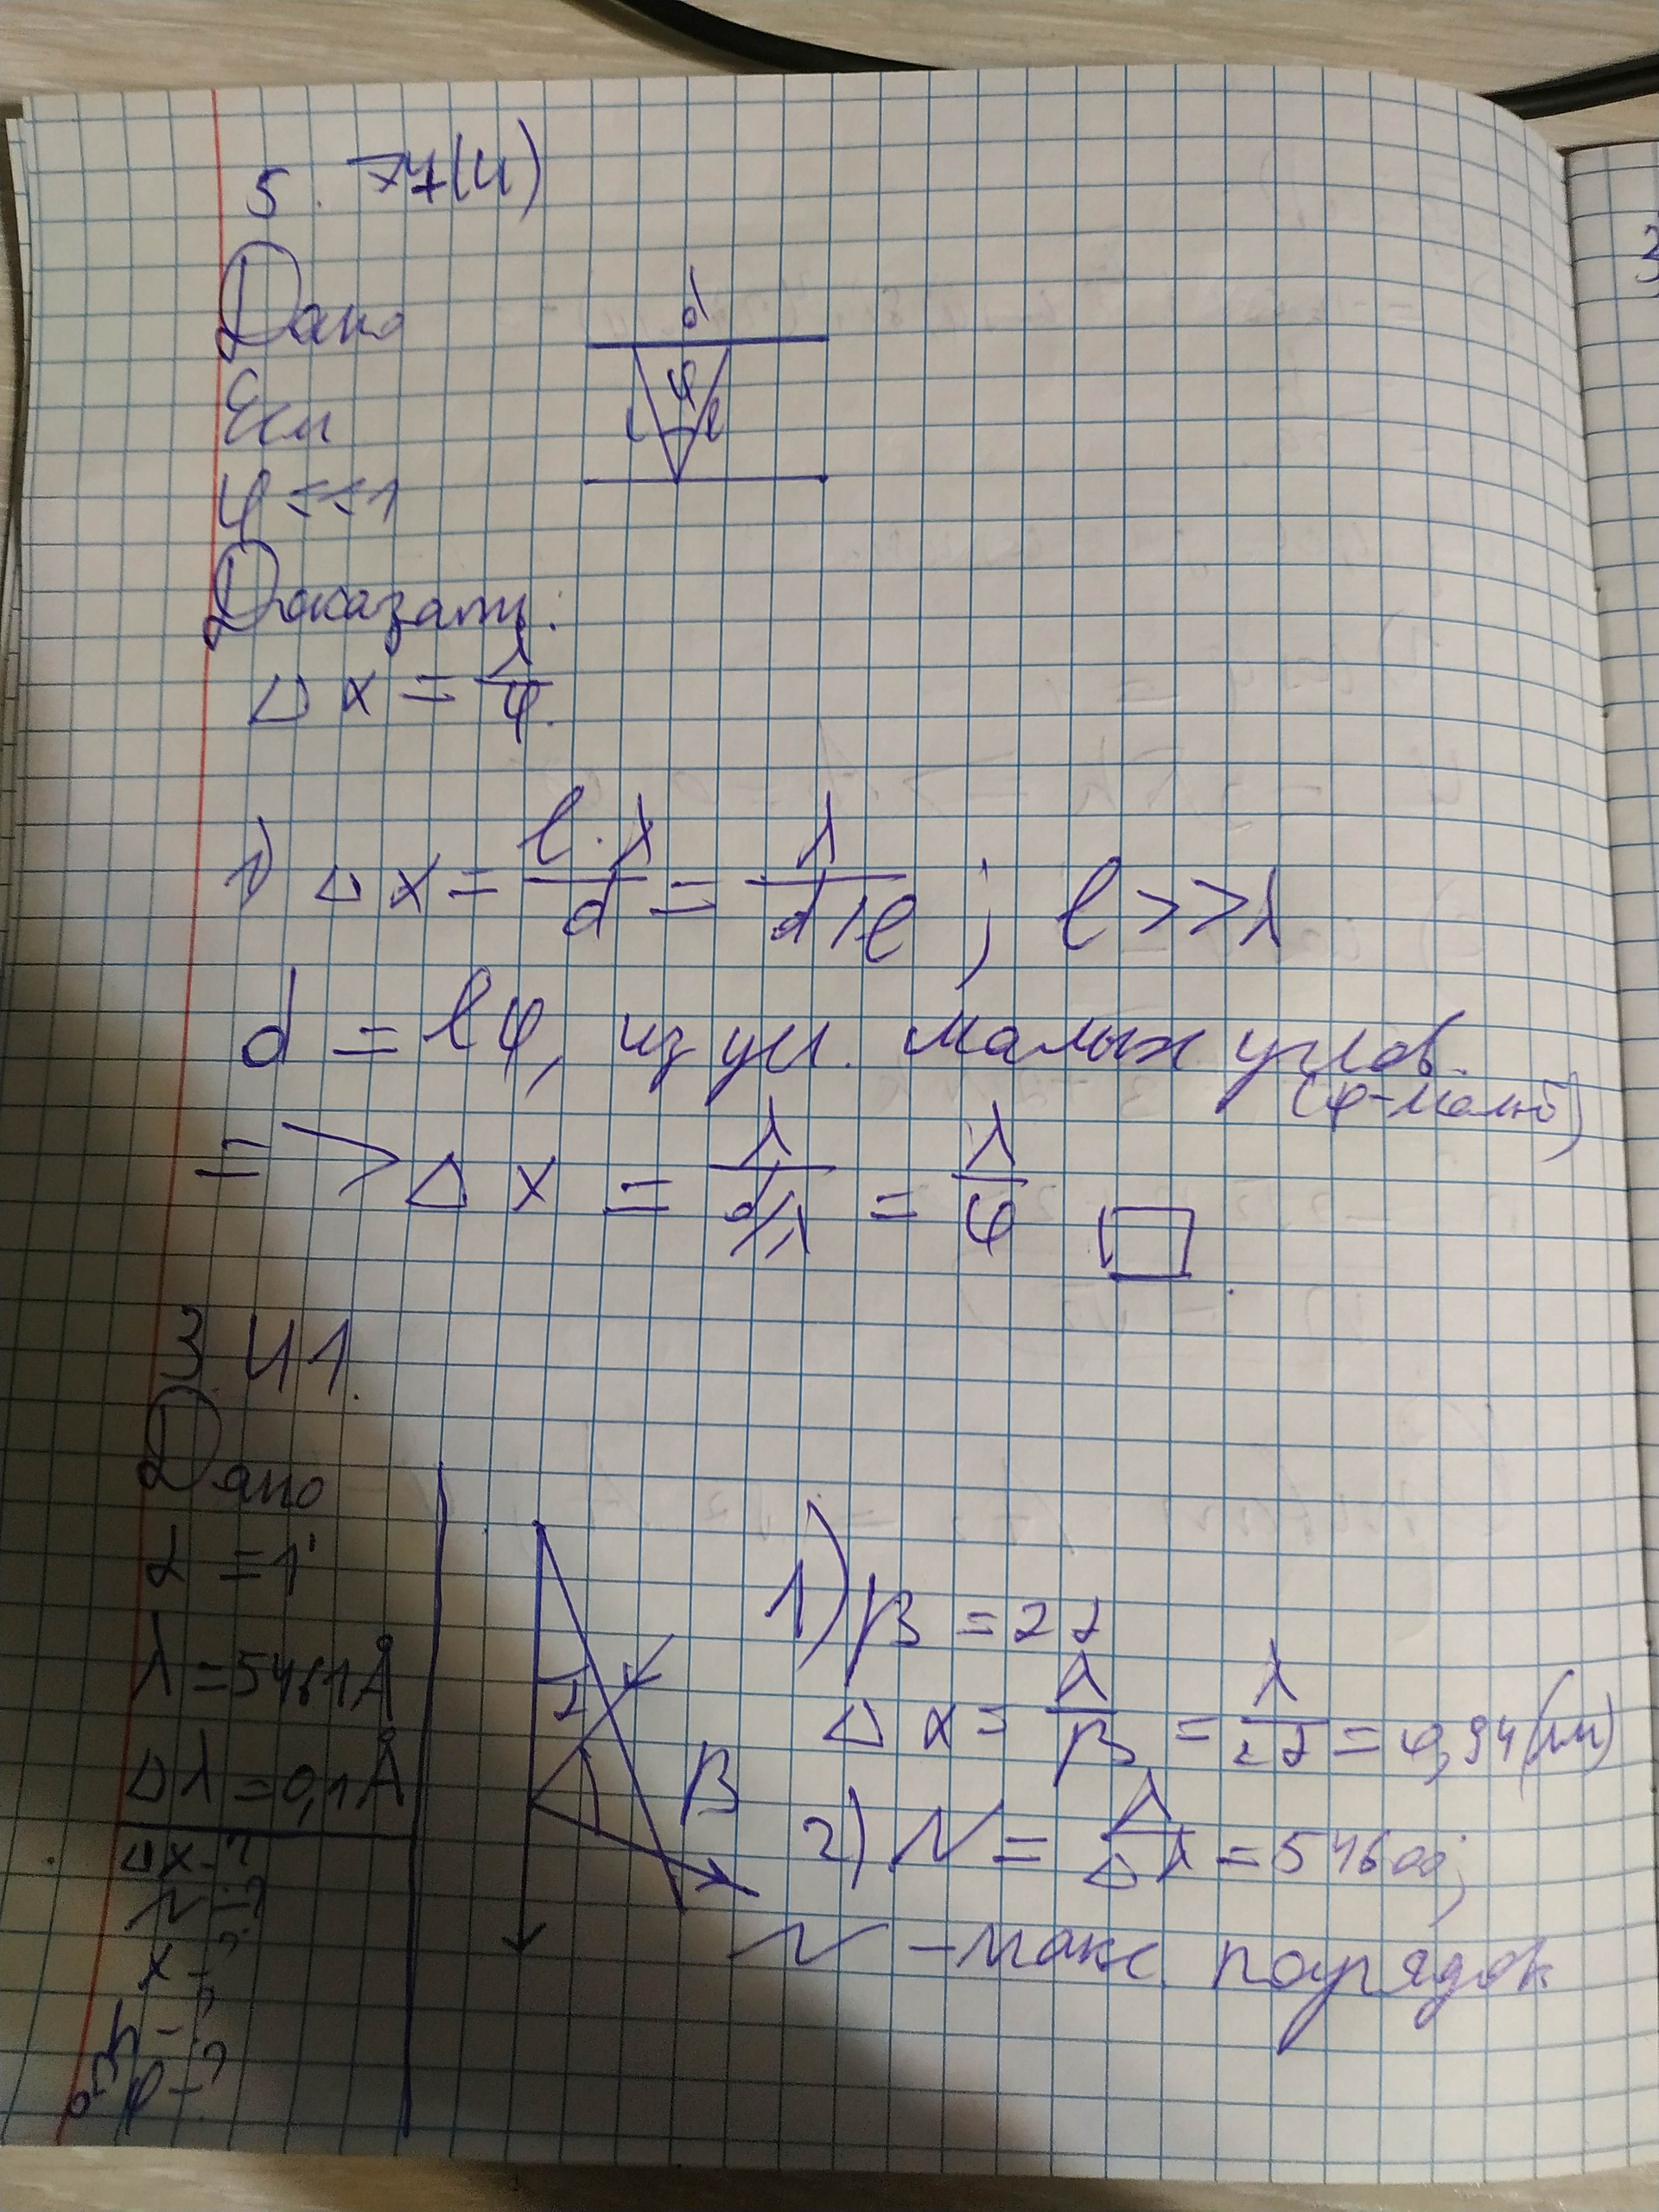 5. 74(И)
Дано
Если
φ<<1
d
φ
l l
Доказать:
Δx = λ/φ.
1) Δx = l·λ/d = λ/(d/l) ; l >> λ
d = lφ, из усл. малых углов.
(φ-малый)
=> Δx = λ/(d/λ) = λ/φ □
3 И1.
Дано
α = 1'
λ = 5461Å
Δλ = 0,1Å
Δx-?
N-?
x-?
h-?
φ-?
α
β
1) β = 2α
Δx = λ/β = λ/2α = 0,94(мм)
2) N = λ/Δλ = 54600;
N - макс. порядок